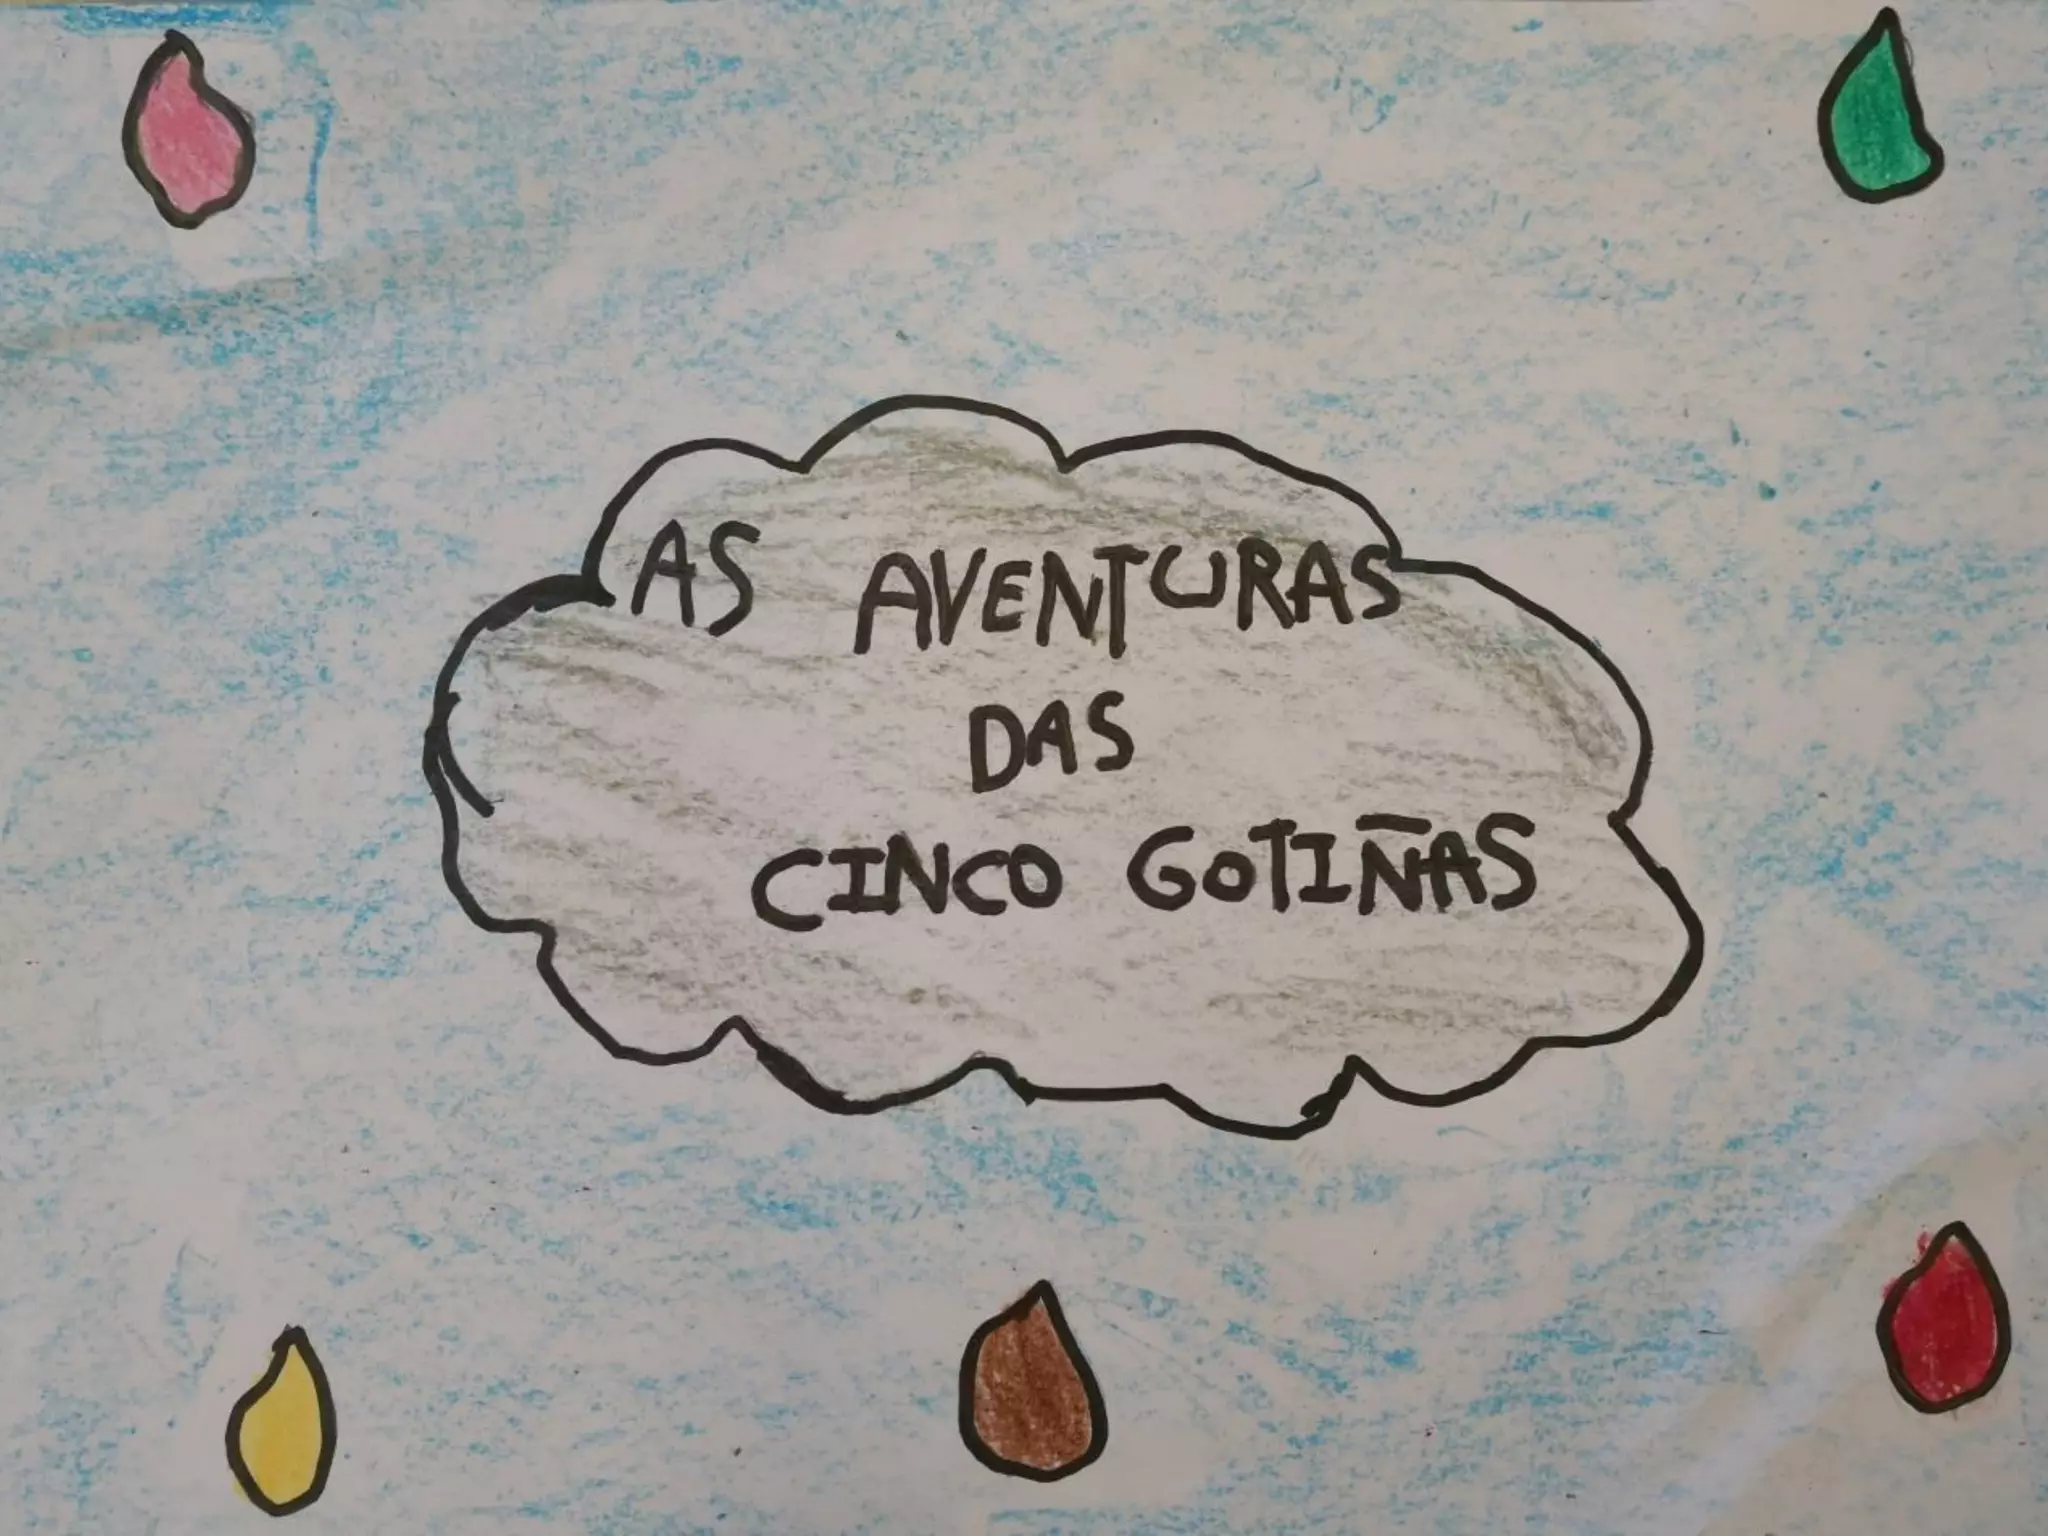 AS AVENTURAS
DAS
CINCO GOTIÑAS